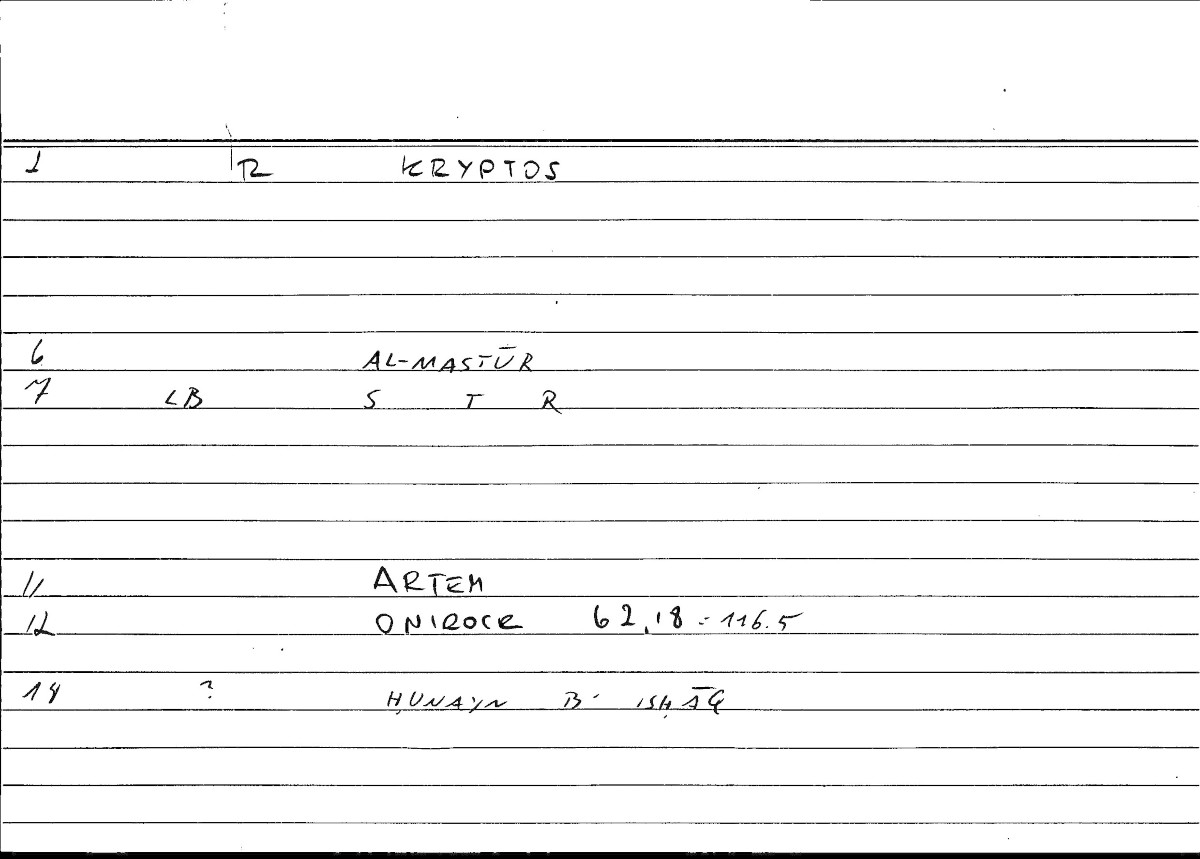 1 R KRYPTOS
6 AL-MASTŪR
7 LB S T R
11 ARTEM
12 ONIROCR 62,18 - 116.5
14 ? ḤUNAYN B. ISḤĀQ